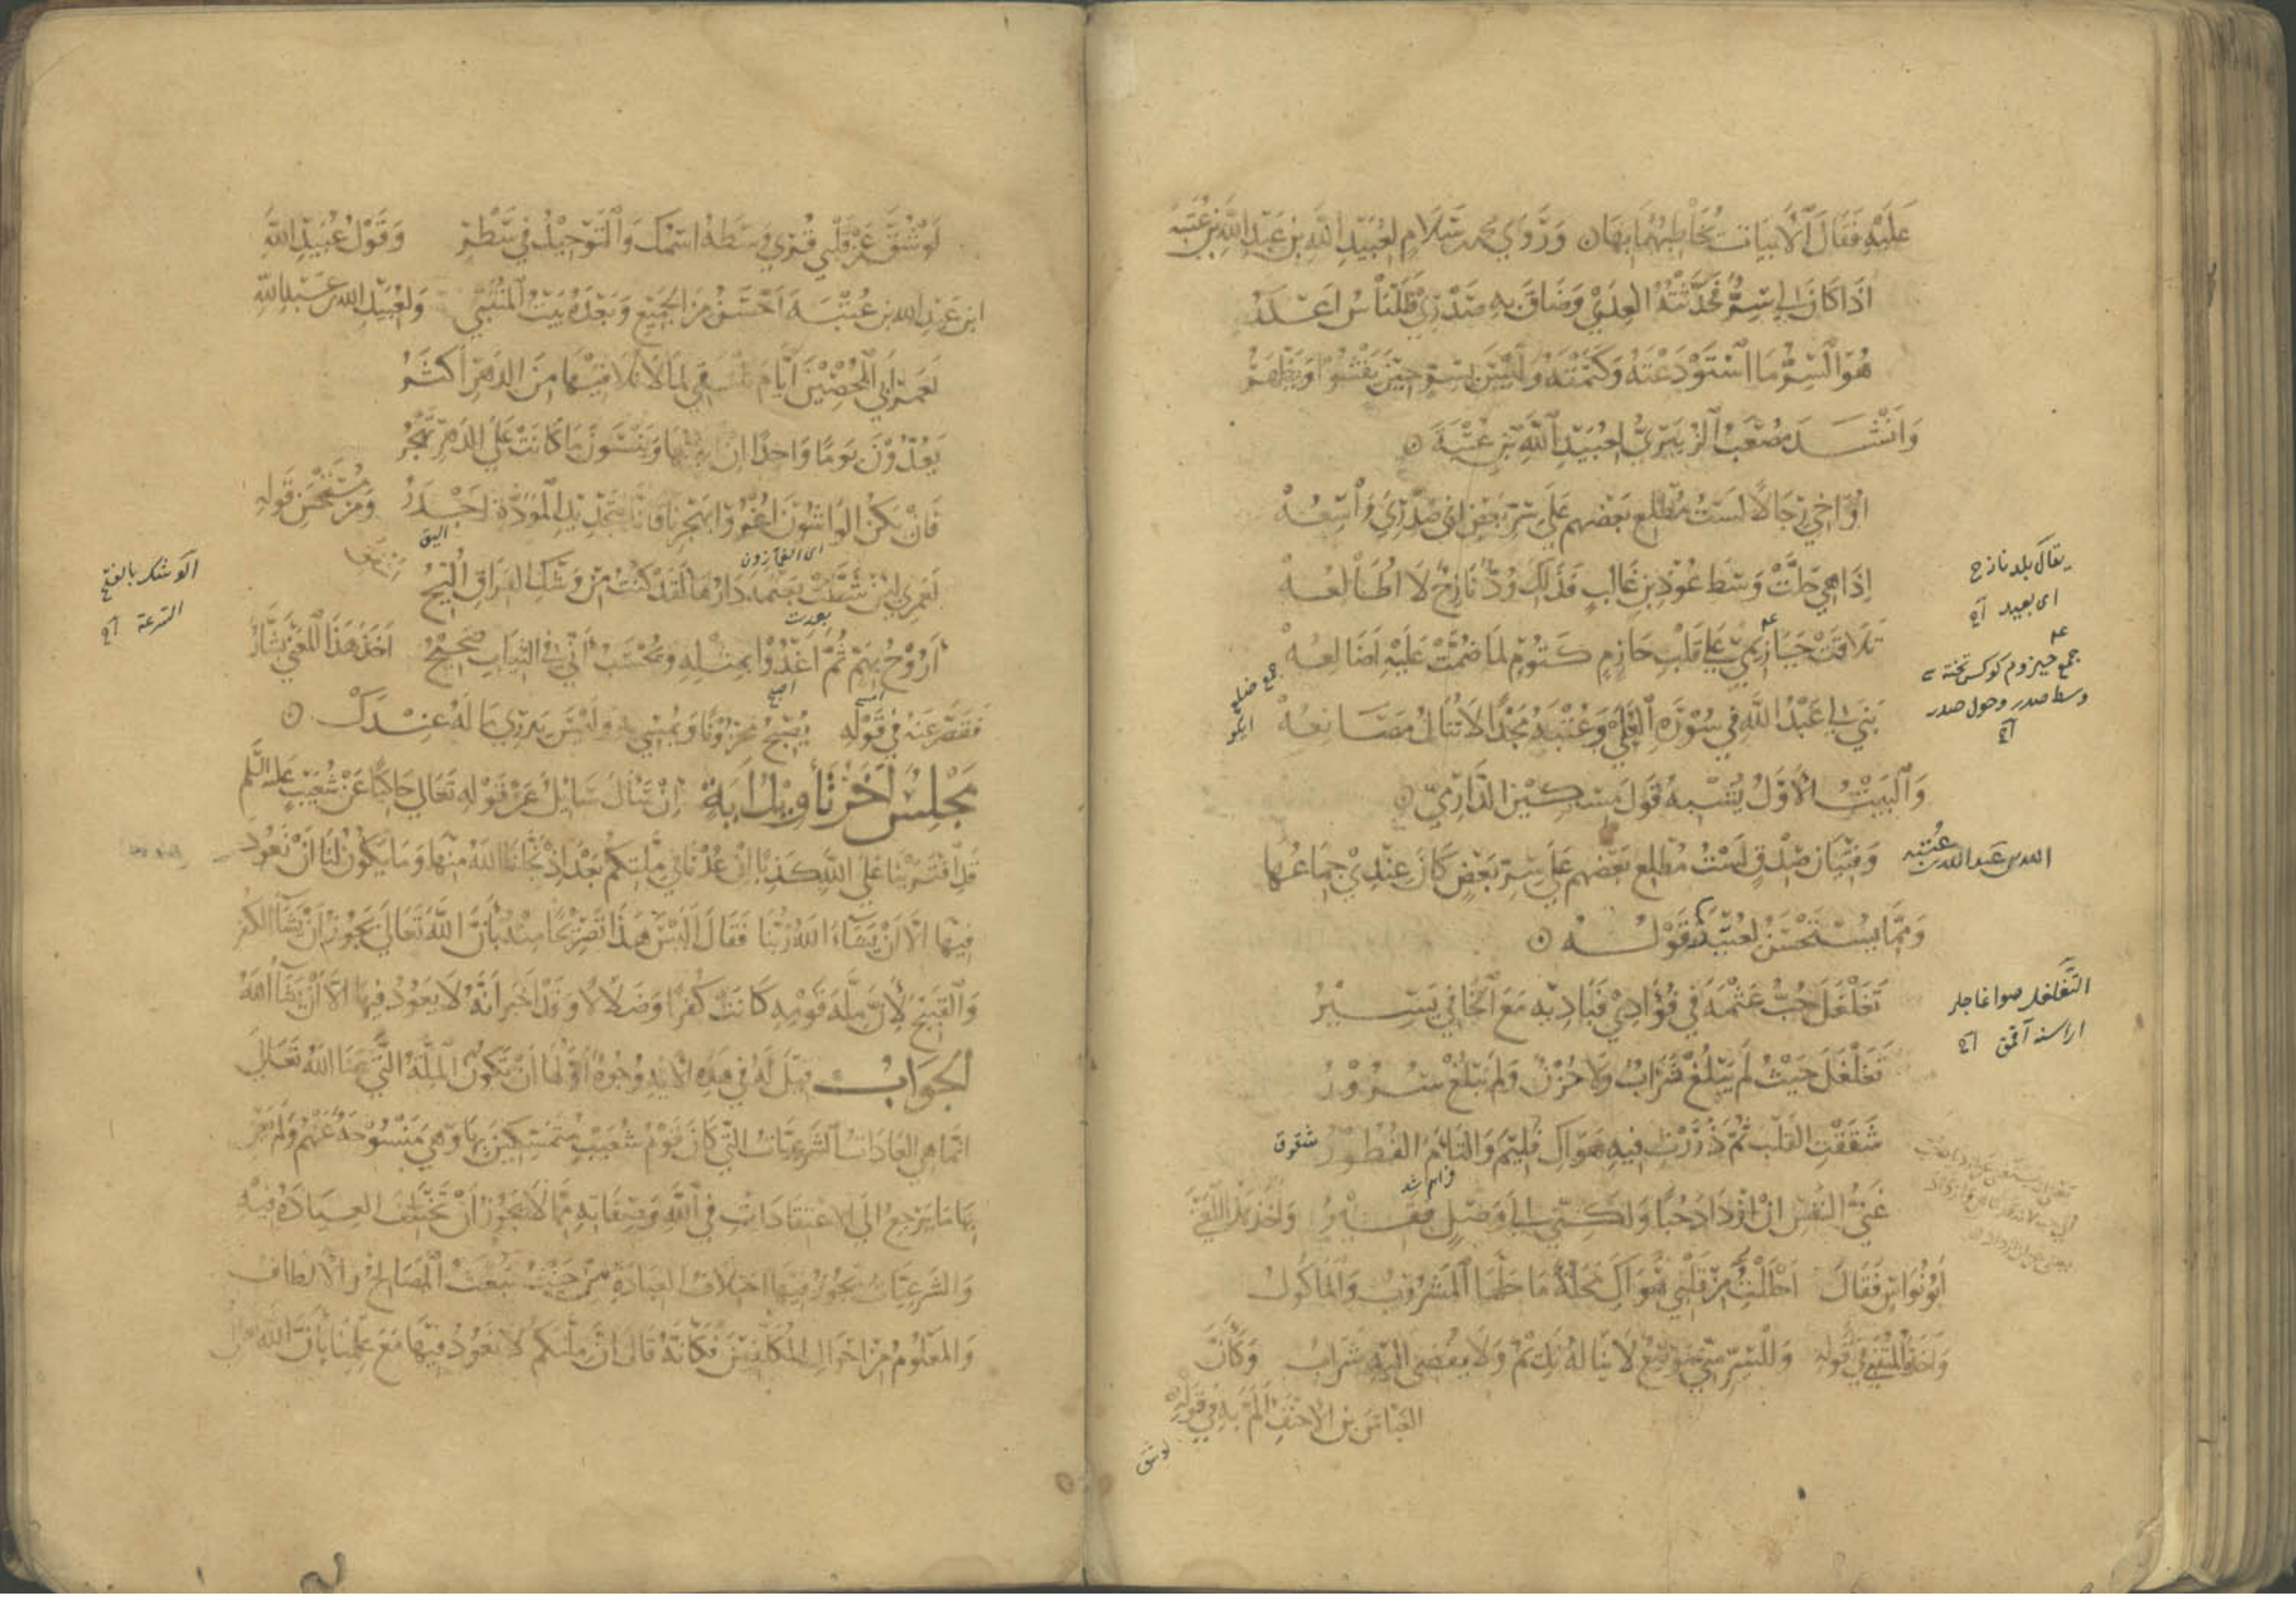 عَلَيْهِ فَقَالَ الْأَبْيَاتَ يُخَاطِبُهُمَا بِهَا وَرَوَى محمد بن سَلَام لِعُبَيْدِ اللهِ بنِ عَبْدِ اللهِ بنِ عُتْبَة
اذَا كَانَ لِي سِرٌّ فَحَدَّثْتُهُ الْعِدَى وَضَاقَ بِهِ صَدْرِي فَلَلنَّاسُ اَعْذَرُ
هُوَ السِّرُّ مَا اسْتَوْدَعْتَهُ وَكَتَمْتَهُ وَلَيْسَ بِسِرٍّ حِينَ يَفْشُو وَيَظْهَرُ
وَانْشَدَ مُصْعَبُ الزُّبَيْرِيُّ لِعُبَيْدِ اللهِ بْنِ عُتْبَةَ
اُوَاخِي رِجَالًا لَسْتُ مُطْلِعَ بَعْضِهِم عَلَى سِرِّ بَعْضٍ اِنَّ صَدْرِي وَاسِعُهْ
إِذَا هِيَ حَلَّتْ وَسْطَ عُوْذِ بنِ غَالِبٍ فَذَلِكَ وُدٌّ نَازِحٌ لَا اُطَالِعُهْ
تَلَاقَتْ حَيَازِيمِي عَلَى قَلْبِ حَازِمٍ كَتُومٍ لِمَا ضُمَّتْ عَلَيْهِ اَضَالِعُهْ
بَنَى لِي عَبْدُ اللهِ فِي سُوْرَةِ الْعُلَى وَعُتْبَةُ مَجْدًا لَا تُنَالُ مَصَانِعُهْ
وَالْبَيْتُ الْاَوَّلُ يُشْبِهُ قَوْلَ مِسْكِينٍ الدَّارِمِيّ
وَفِتْيَانِ صِدْقٍ لَسْتُ مُطْلِعَ بَعْضِهِم عَلَى سِرِّ بَعْضٍ كَانَ عِنْدِي جِمَاعُهَا
وَمِمَّا يُسْتَحْسَنُ لِعُبَيْدِ قَوْلُهُ
تَغَلْغَلَ حُبُّ عَثْمَةَ فِي فُؤَادِي فَبَادِيهِ مَعَ الْخَافِي يَسِيْرُ
تَغَلْغَلَ حَيْثُ لَمْ يَبْلُغْ شَرَابٌ وَلَا حُزْنٌ وَلَمْ يَبْلُغْ سُرُوْرُ
شَقَقْتِ الْقَلْبَ ثُمَّ ذَرَرْتِ فِيهِ هَوَاكِ فَلِيْمَ وَالْتَامَ الْفُطُوْرُ
شقوق
فراهم شد
غَنِيُّ النَّفْسِ اِنْ اَزْدَادَ حُبًّا وَلَكِنِّي اِلَى وَصْلٍ فَقِيْرُ وَاَخَذَ هَذَا الْمَعْنَى
اَبُوْ نُوَاسٍ فَقَالَ اَحْلَلْتِ مِنْ قَلْبِي هَوَاكِ مَحَلَّةً مَا حَلَّهَا الْمَشْرُوْبُ وَالْمَاكُوْلُ
وَاَخَذَهُ الْمُتَنَبِّي فِي قَوْلِهِ وَلِلسِّرِّ مِنِّي مَوْضِعٌ لَا يَنَالُهُ نَدِيْمٌ وَلَا يُفْضِي اِلَيْهِ شَرَابُ وَكَاَنَّ
الْعَبَّاسَ بنَ الْاَحْنَفِ اَلَمَّ بِهِ فِي قَوْلِهِ
لو شق
يقال بلد نازح
اى بعيد
جمع حيزوم
وسط صدر وحول صدر
جمع ضلع
الله بن عبد الله بن عتبة
التغلغل
لَوْ شُقَّ عَنْ قَلْبِي قُرِي وَسْطَهُ اسْمُكِ وَالتَّوْحِيْدُ فِي سَطْرِ وَقَوْلُ عُبَيْدِ اللهِ
ابنِ عَبْدِ اللهِ بنِ عُتْبَةَ اَحْسَنُ مِنَ الْجَمِيْعِ وَبَعْدَهُ بَيْتُ الْمُتَنَبِّي وَلِعُبَيْدِ اللهِ بن عَبْدِ اللهِ
لَعَمْرُ اَبِي الْمُحْصِيْنَ اَيَّامَ نَلْتَقِي لِمَا لَا نُلَاقِيْهَا مِنَ الدَّهْرِ اَكْثَرُ
يَعُدُّوْنَ يَوْمًا وَاحِدًا اِنْ وَيَنْسَوْنَ مَا كَانَتْ عَلَى الدَّهْرِ تَهْجُرُ
فَاِنْ يَكُنِ الْوَاشُوْنَ اَغْرُوْا بِهَجْرِنَا فَاِنَّا بِتَجْدِيْدِ الْمَوَدَّةِ اَجْدَرُ وَمِنْ مُسْتَحْسَنِ قَوْلِهِ
اليق
اى الغمازون
لَعَمْرِي لَئِنْ شَطَّتْ بِعَثْمَةَ دَارُهَا لَقَدْ كُنْتُ مِنْ وَشْكِ الْفِرَاقِ اُلِيحُ
بعدت
اَرُوْحُ بِهَمٍّ ثُمَّ اَغْدُوْا بِمِثْلِهِ وَيُحْسَبُ اَنِّي فِي الثِّيَابِ صَحِيْحُ اَخَذَ هَذَا الْمَعْنَى بَشَّارٌ
اصبح
امسى
فَقَصَّرَ عَنْهُ فِي قَوْلِهِ يُصْبِحُ مَحْزُوْنًا وَيُمْسِي بِهِ وَلَيْسَ يَدْرِي مَا لَهُ عِنْدَكْ
مَجْلِسٌ اَخَرُ تَأْوِيْلُ اَيَةٍ اِنْ سَأَلَ سَائِلٌ عَنْ قَوْلِهِ تَعَالَى حَاكِيًا عَنْ شُعَيْبٍ عَلَيْهِ السَّلَم
قَدِ افْتَرَيْنَا عَلَى اللهِ كَذِبًا اِنْ عُدْنَا فِي مِلَّتِكُمْ بَعْدَ اِذْ نَجَّانَا اللهُ مِنْهَا وَمَا يَكُوْنُ لَنَا اَنْ نَعُوْدَ
فِيْهَا اِلَّا اَنْ يَشَاءَ اللهُ رَبُّنَا فَقَالَ اَلَيْسَ هَذَا تَصْرِيْحًا مِنْهُ بِاَنَّ اللهَ تَعَالَى يَجُوْزُ اَنْ يَشَاءَ الْكُفْرَ
وَالْقَبِيْحَ لِاَنَّ مِلَّةَ قَوْمِهِ كَانَتْ كُفْرًا وَضَلَالًا وَقَدْ اَخْبَرَ اَنَّهُ لَا يَعُوْدُ فِيْهَا اِلَّا اَنْ يَشَاءَ اللهُ
الْجَوَابُ قِيْلَ لَهُ فِي هَذِهِ الْاَيَةِ وُجُوْهٌ اَوَّلُهَا اَنْ تَكُوْنَ الْمِلَّةُ الَّتِي عَنَا اللهُ تَعَالَى
اِنَّمَا هِيَ الْعِبَادَاتُ الشَّرْعِيَّاتُ الَّتِي كَانَ قَوْمُ شُعَيْبٍ مُتَمَسِّكِيْنَ بِهَا وَهِيَ مَنْسُوْخَةٌ عَنْهُمْ وَلَمْ يَعْنِ
بِهَا مَا يَرْجِعُ اِلَى الْاعْتِقَادَاتِ فِي اللهِ وَصِفَاتِهِ مِمَّا لَا يَجُوْزُ اَنْ تَخْتَلِفَ الْعِبَادَةُ فِيْهِ
وَالشَّرْعِيَّاتُ يَجُوْزُ فِيْهَا اخْتِلَافُ الْعِبَادَةِ مِنْ حَيْثُ تَبِعَتْ الْمَصَالِحَ وَالْاَلْطَافَ
وَالْمَعْلُوْمَ مِنْ اَحْوَالِ الْمُكَلَّفِيْنَ فَكَاَنَّهُ قَالَ اِنَّ مِلَّتَكُمْ لَا نَعُوْدُ فِيْهَا مَعَ عِلْمِنَا بِاَنَّ اللهَ
الوشك بالفتح
السرعة